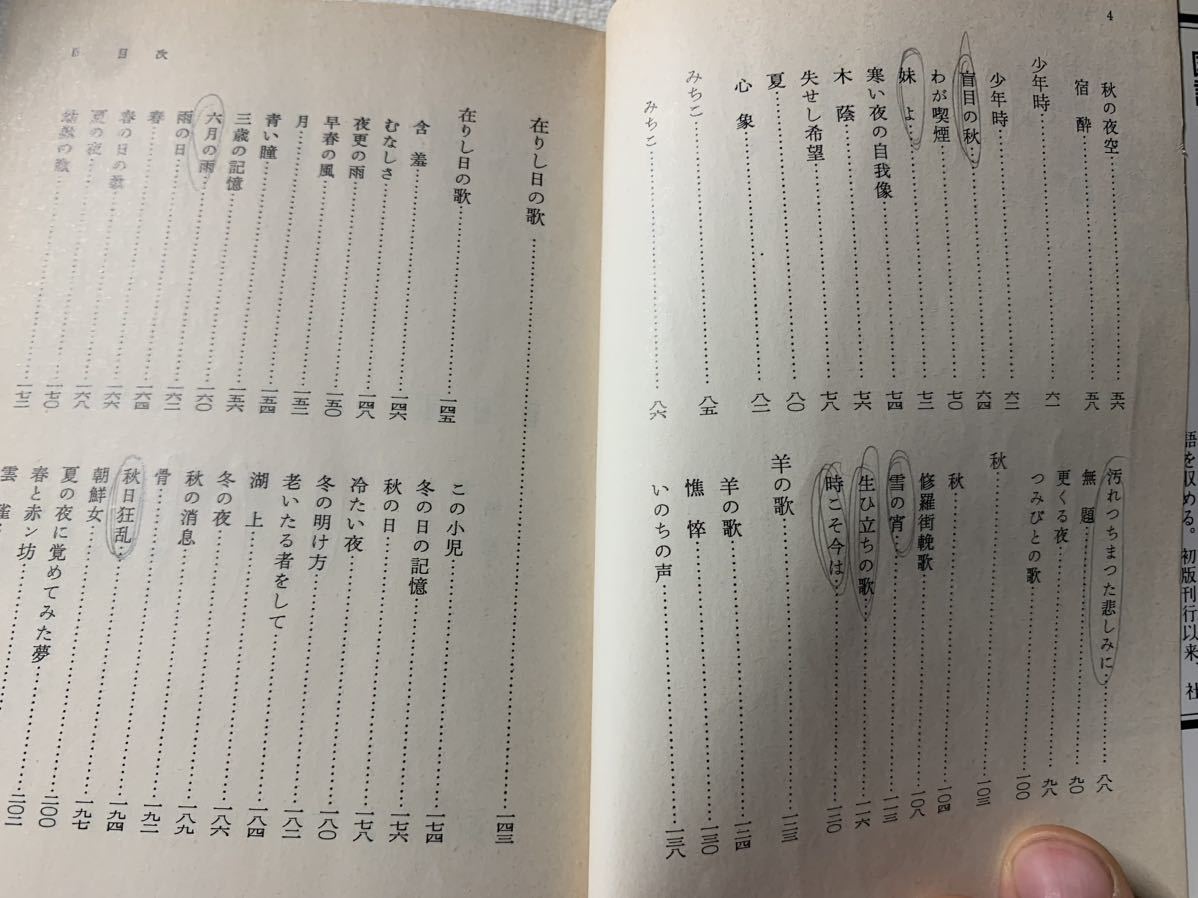 4
秋の夜空……五六
宿酔……五八
少年時……六一
少年時……六二
盲目の秋……六四
わが喫煙……七〇
妹よ……七二
寒い夜の自我像……七四
木蔭……七六
失せし希望……七八
夏……八〇
心象……八二
みちこ……八五
みちこ……八六
汚れつちまつた悲しみに……八八
無題……九〇
更くる夜……九八
つみびとの歌……一〇〇
秋……一〇三
秋……一〇四
修羅街輓歌……一〇八
雪の宵……一一三
生ひ立ちの歌……一一六
時こそ今は……一二〇
羊の歌……一二三
羊の歌……一二四
憔悴……一三〇
いのちの声……一三八
目次
在りし日の歌……一四三
在りし日の歌……一四五
含羞
むなしさ……一四六
夜更の雨……一四八
早春の風……一五〇
月……一五二
青い瞳……一五四
三歳の記憶……一五六
六月の雨……一六〇
雨の日……一六二
春……一六四
春の日の歌……一六六
夏の夜……一六八
幼獣の歌……一七〇
一七二
この小児……一七四
冬の日の記憶……一七六
秋の日……一七八
冷たい夜……一八〇
冬の明け方……一八二
老いたる者をして……一八四
湖上……一八六
冬の夜……一八九
秋の消息……一九二
骨……一九四
秋日狂乱……一九七
朝鮮女……二〇〇
夏の夜に覚めてみた夢……二〇二
春と赤ン坊
雲雀
語を収める。初版刊行以来、
社